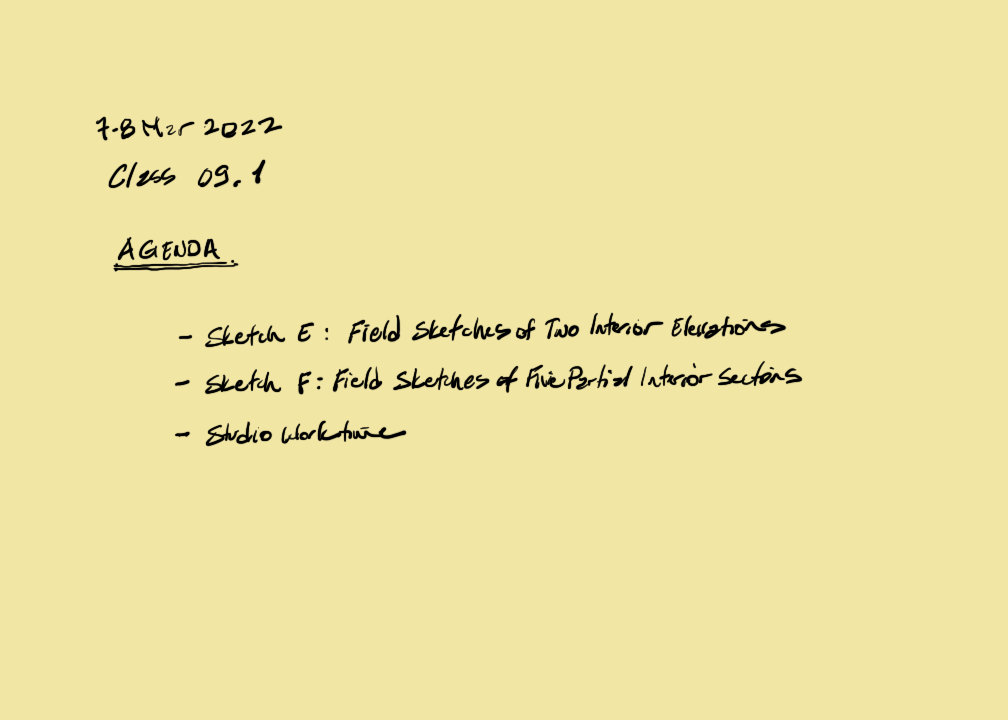 7-8 Mar 2022
Class 09.1
AGENDA.
- Sketch E: Field Sketches of Two Interior Elevations
- Sketch F: Field Sketches of Five Partial Interior Sections
- Studio Worktime